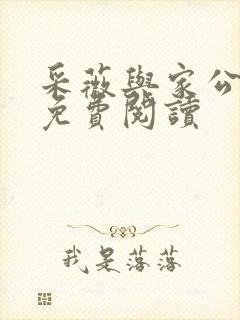 采薇與家公
免費閱讀
我是落落